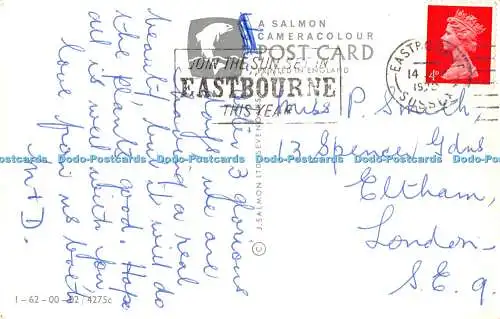 A SALMON
CAMERACOLOUR
POST CARD
PRINTED IN ENGLAND
JOIN THE SUN SET IN
EASTBOURNE
THIS YEAR
EASTBOURNE
14
SUSSEX
4P
After 3 glorious
days we are
having a real
beauty but it will do
the plants good. Hope
all is well with you
love from us both
M + D.
© J. SALMON LTD. SEVENOAKS
Miss P. Smith
13 Spencer Gdns
Eltham,
London
S.E.9.
1-62-00-02/4275c
Dodo-Postcards Dodo-Postcards Dodo-Postcards Dodo-Postcards Dodo-Postcards Dodo-Postcards